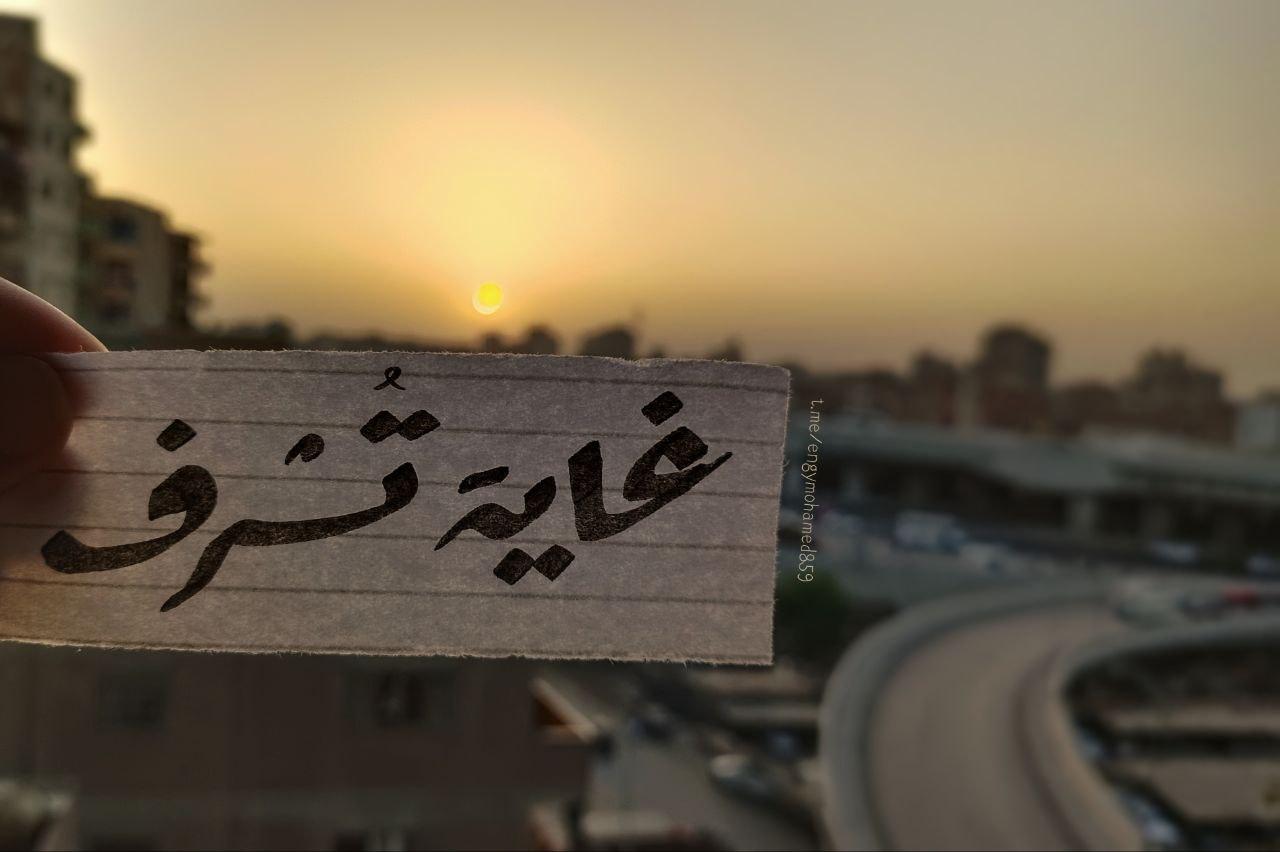 غاية تُشرف
t.me/engymohamed859